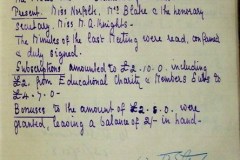 present. Miss Nesbitt, Mrs Blake & the honorary
secretary. Miss M.A. Knights.
The Minutes of the Last Meeting were read, confirmed
& duly signed.
Subscriptions amounted to £2.10.0. including
£2. from Educational Charity & Members Subs to
£4.7.0-
Bonuses to the amount of £2.5.0. were
granted, leaving a balance of 2/- in hand.